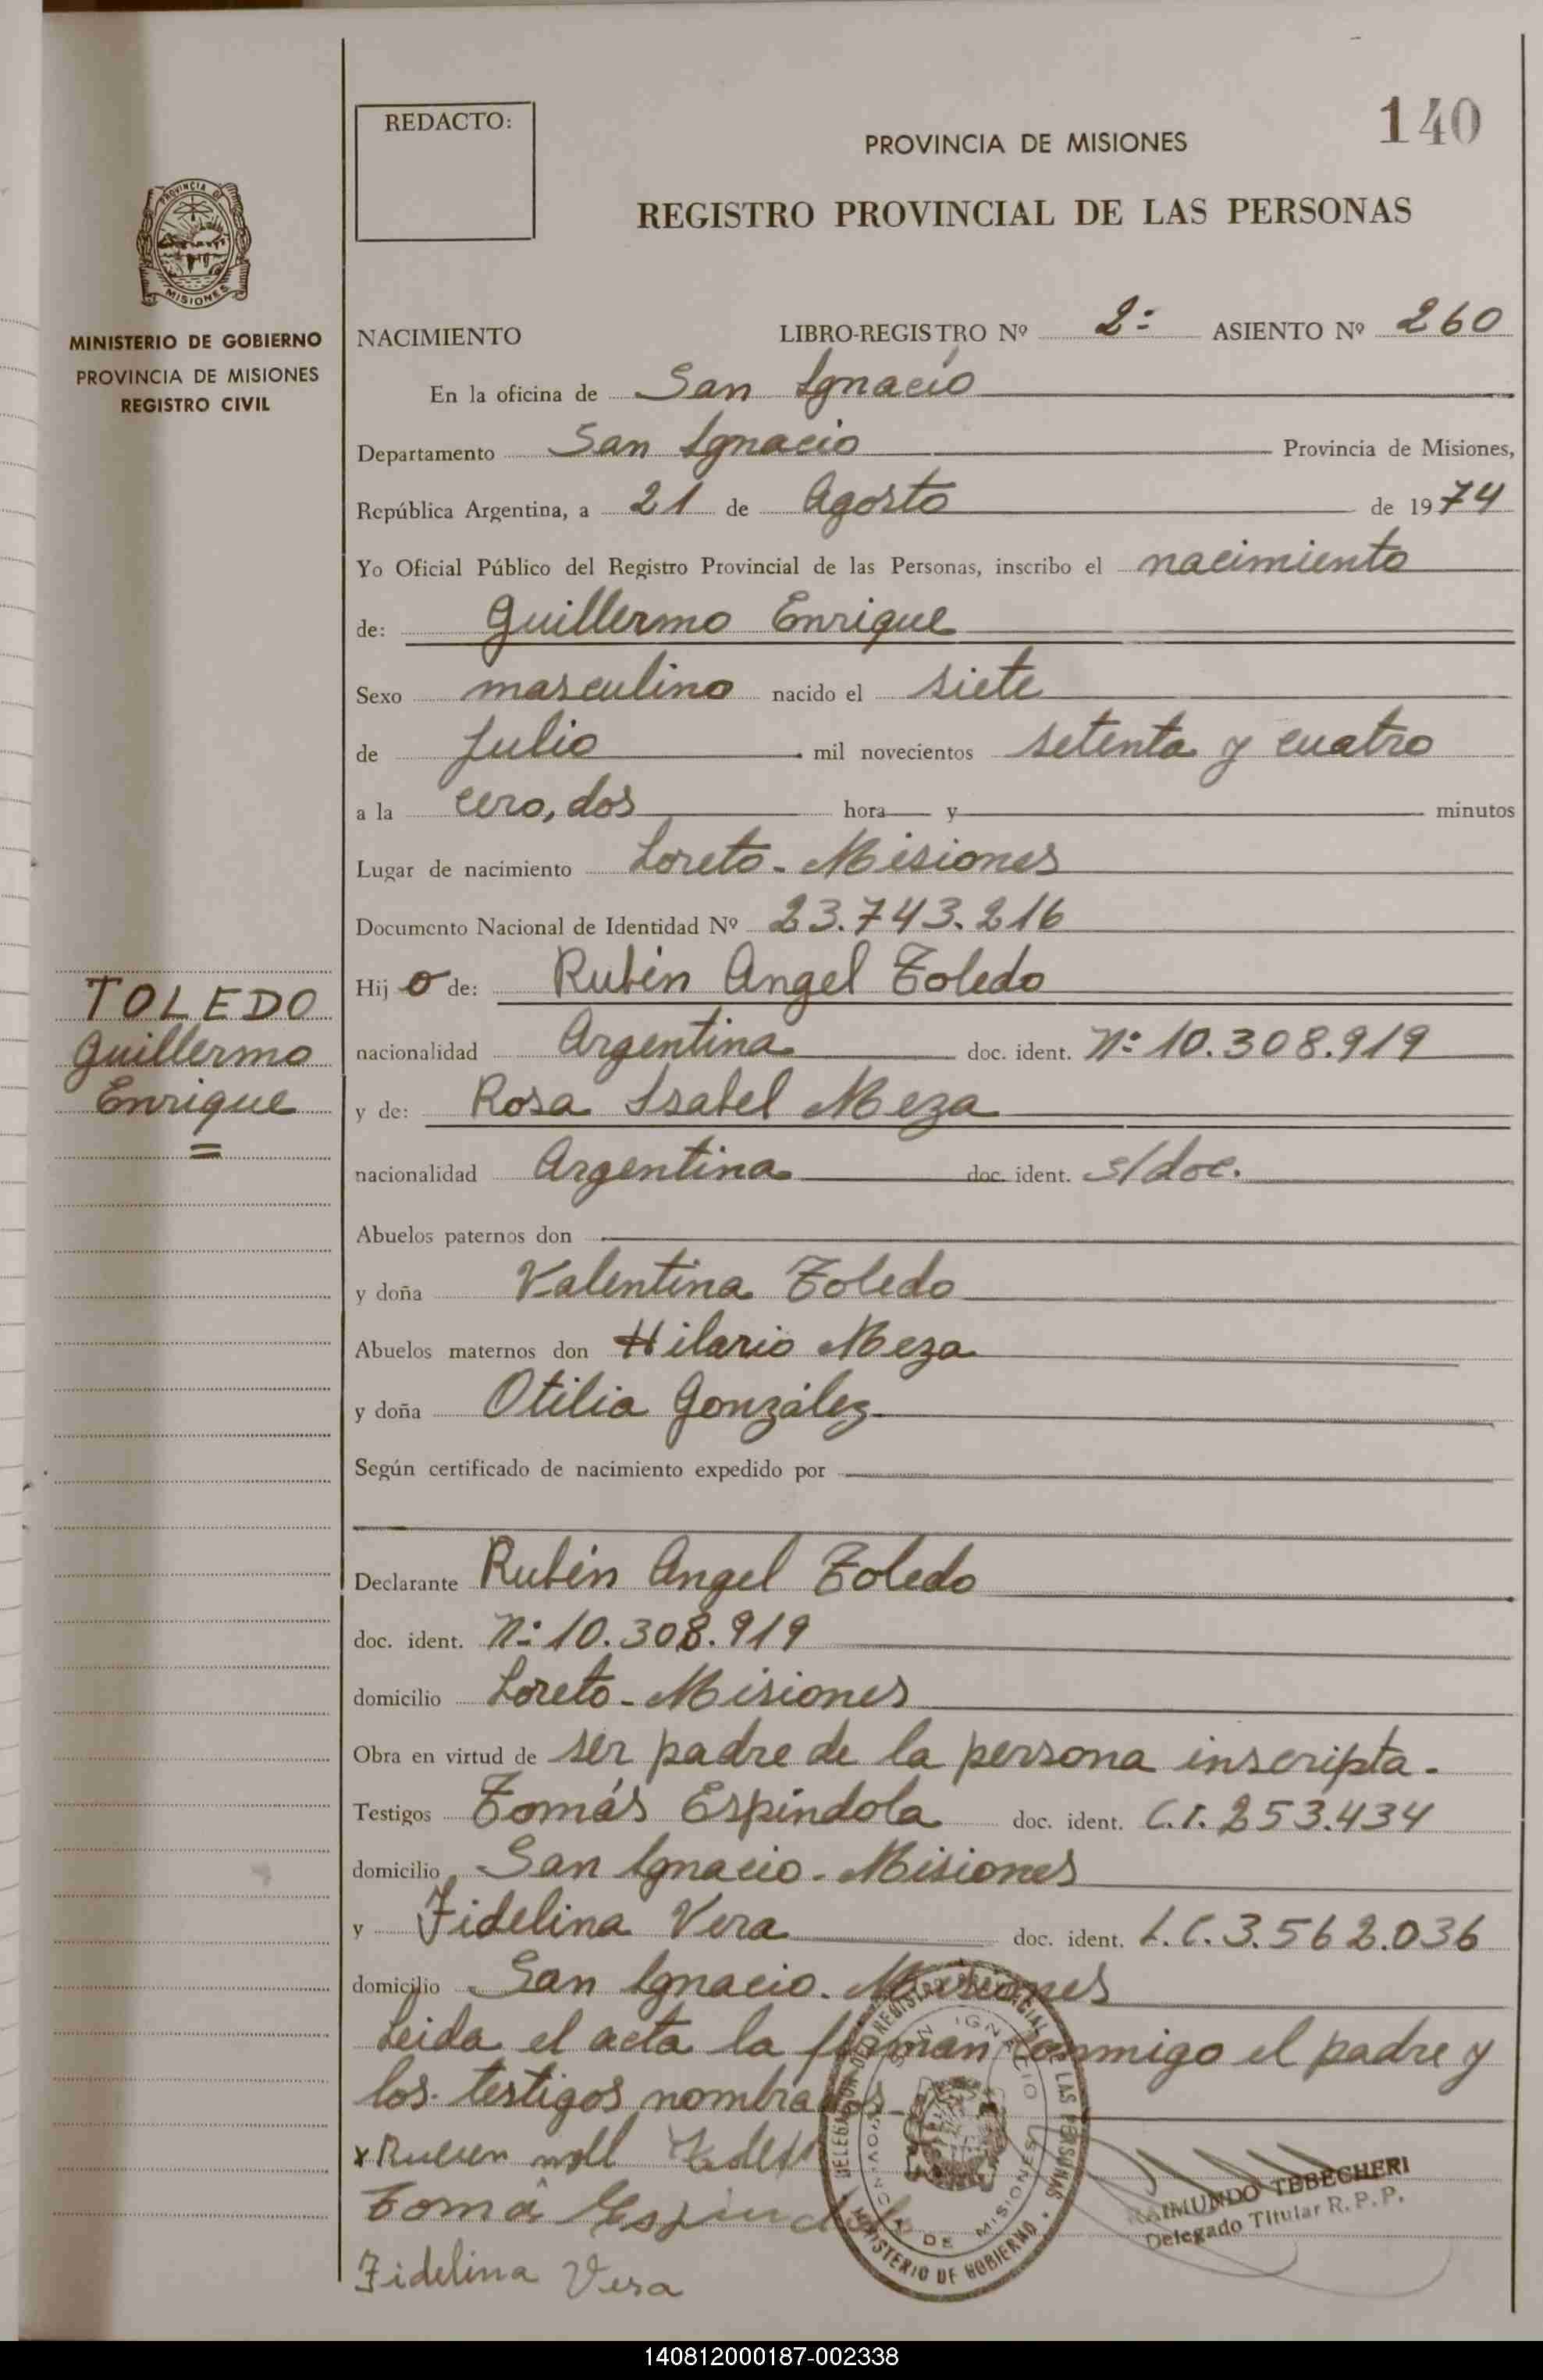 REDACTO:
PROVINCIA DE MISIONES
140
REGISTRO PROVINCIAL DE LAS PERSONAS
PROVINCIA DE
MISIONES
MINISTERIO DE GOBIERNO
PROVINCIA DE MISIONES
REGISTRO CIVIL
NACIMIENTO LIBRO-REGISTRO Nº 2º ASIENTO Nº 260
En la oficina de San Ignacio
Departamento San Ignacio Provincia de Misiones,
República Argentina, a 21 de Agosto de 1974
Yo Oficial Público del Registro Provincial de las Personas, inscribo el nacimiento
de: Guillermo Enrique
Sexo masculino nacido el siete
de Julio mil novecientos setenta y cuatro
a la cero, dos hora y minutos
Lugar de nacimiento Loreto - Misiones
Documento Nacional de Identidad Nº 23.743.216
TOLEDO
Guillermo
Enrique
Hijo de: Rubén Angel Toledo
nacionalidad Argentina doc. ident. Nº 10.308.919
y de: Rosa Isabel Meza
nacionalidad Argentina doc. ident. s/doc.
Abuelos paternos don
y doña Valentina Toledo
Abuelos maternos don Hilario Meza
y doña Otilia González
Según certificado de nacimiento expedido por
Declarante Rubén Angel Toledo
doc. ident. Nº 10.308.919
domicilio Loreto - Misiones
Obra en virtud de ser padre de la persona inscripta.
Testigos Tomás Espíndola doc. ident. C.I. 253.434
domicilio San Ignacio - Misiones
y Fidelina Vera doc. ident. L.C. 3.562.036
domicilio San Ignacio. Misiones
Leida el acta la firman conmigo el padre y
los testigos nombrados
Toma Espindola
Fidelina Vera
DELEGACION DEL REGISTRO PROVINCIAL DE LAS PERSONAS
SAN IGNACIO
PROVINCIA DE MISIONES
MINISTERIO DE GOBIERNO
RAIMUNDO TEBECHERI
Delegado Titular R. P. P.
140812000187-002338